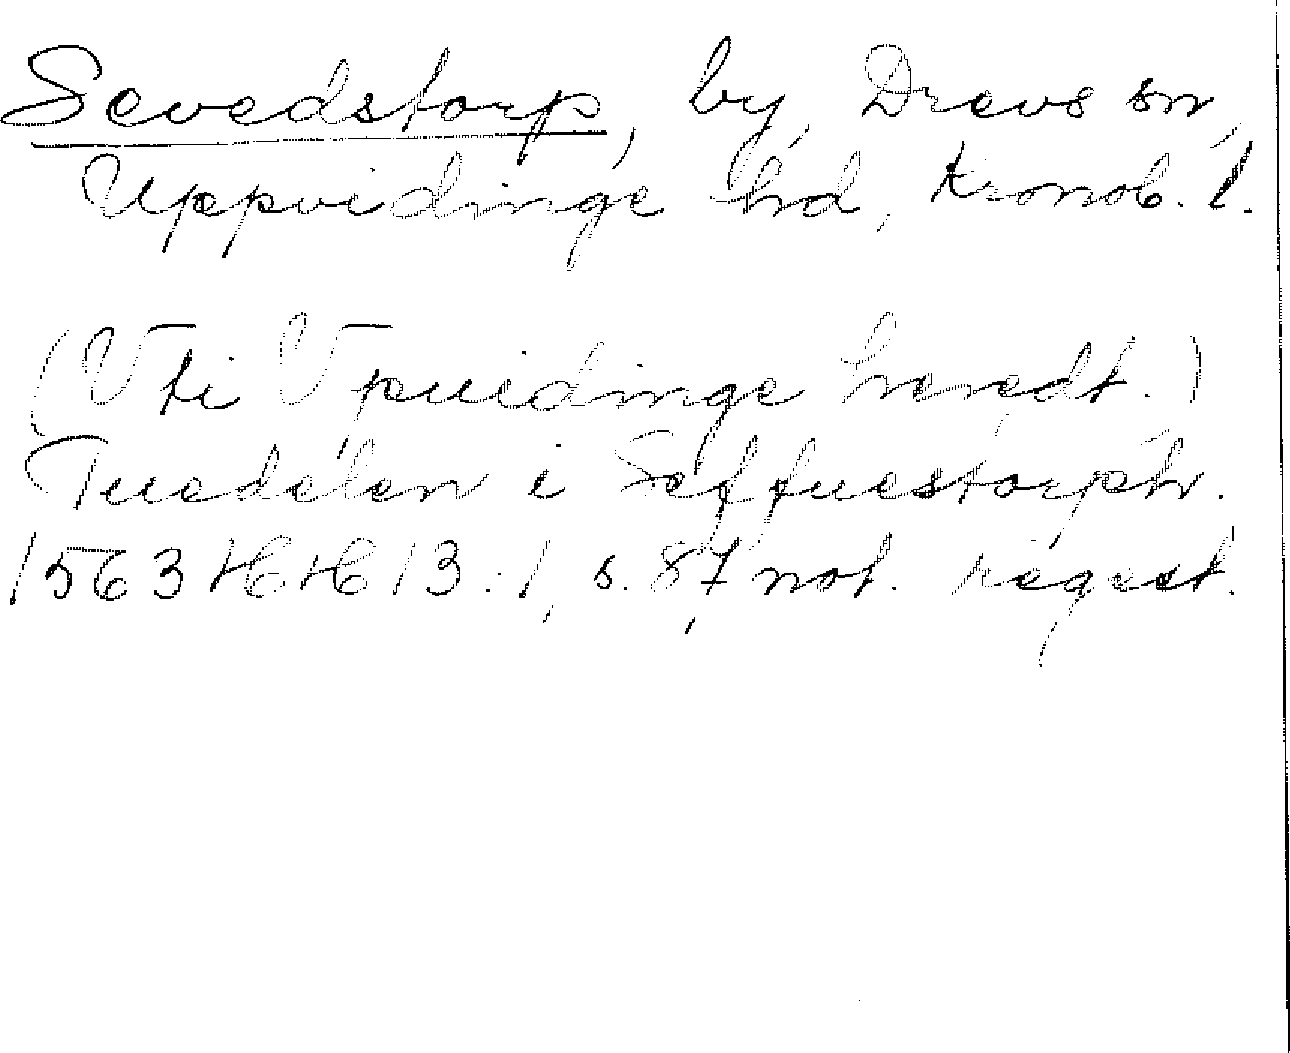 Sevedstorp, by, Drevs sn,
Uppvidinge hd, Kronob. l.
(Vti Vpuidinge heredt.)
Tuedelen i Seffuestorph.
1563 HH 13:1, s. 87 not. regest.